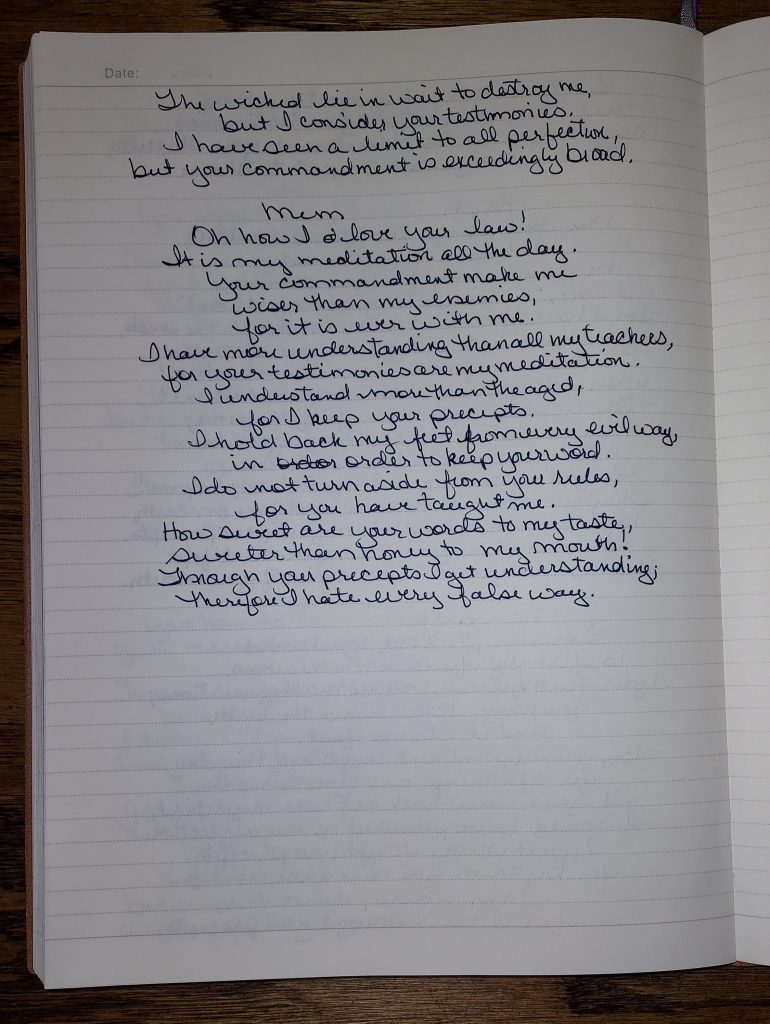 Date:
The wicked lie in wait to destroy me,
but I consider your testimonies.
I have seen a limit to all perfection,
but your commandment is exceedingly broad.
Mem
Oh how I love your law!
It is my meditation all the day.
Your commandment make me
wiser than my enemies,
for it is ever with me.
I have more understanding than all my teachers,
for your testimonies are my meditation.
I understand more than the aged,
for I keep your precepts.
I hold back my feet from every evil way,
in order to keep your word.
I do not turn aside from your rules,
for you have taught me.
How sweet are your words to my taste,
sweeter than honey to my mouth!
Through your precepts I get understanding;
therefore I hate every false way.